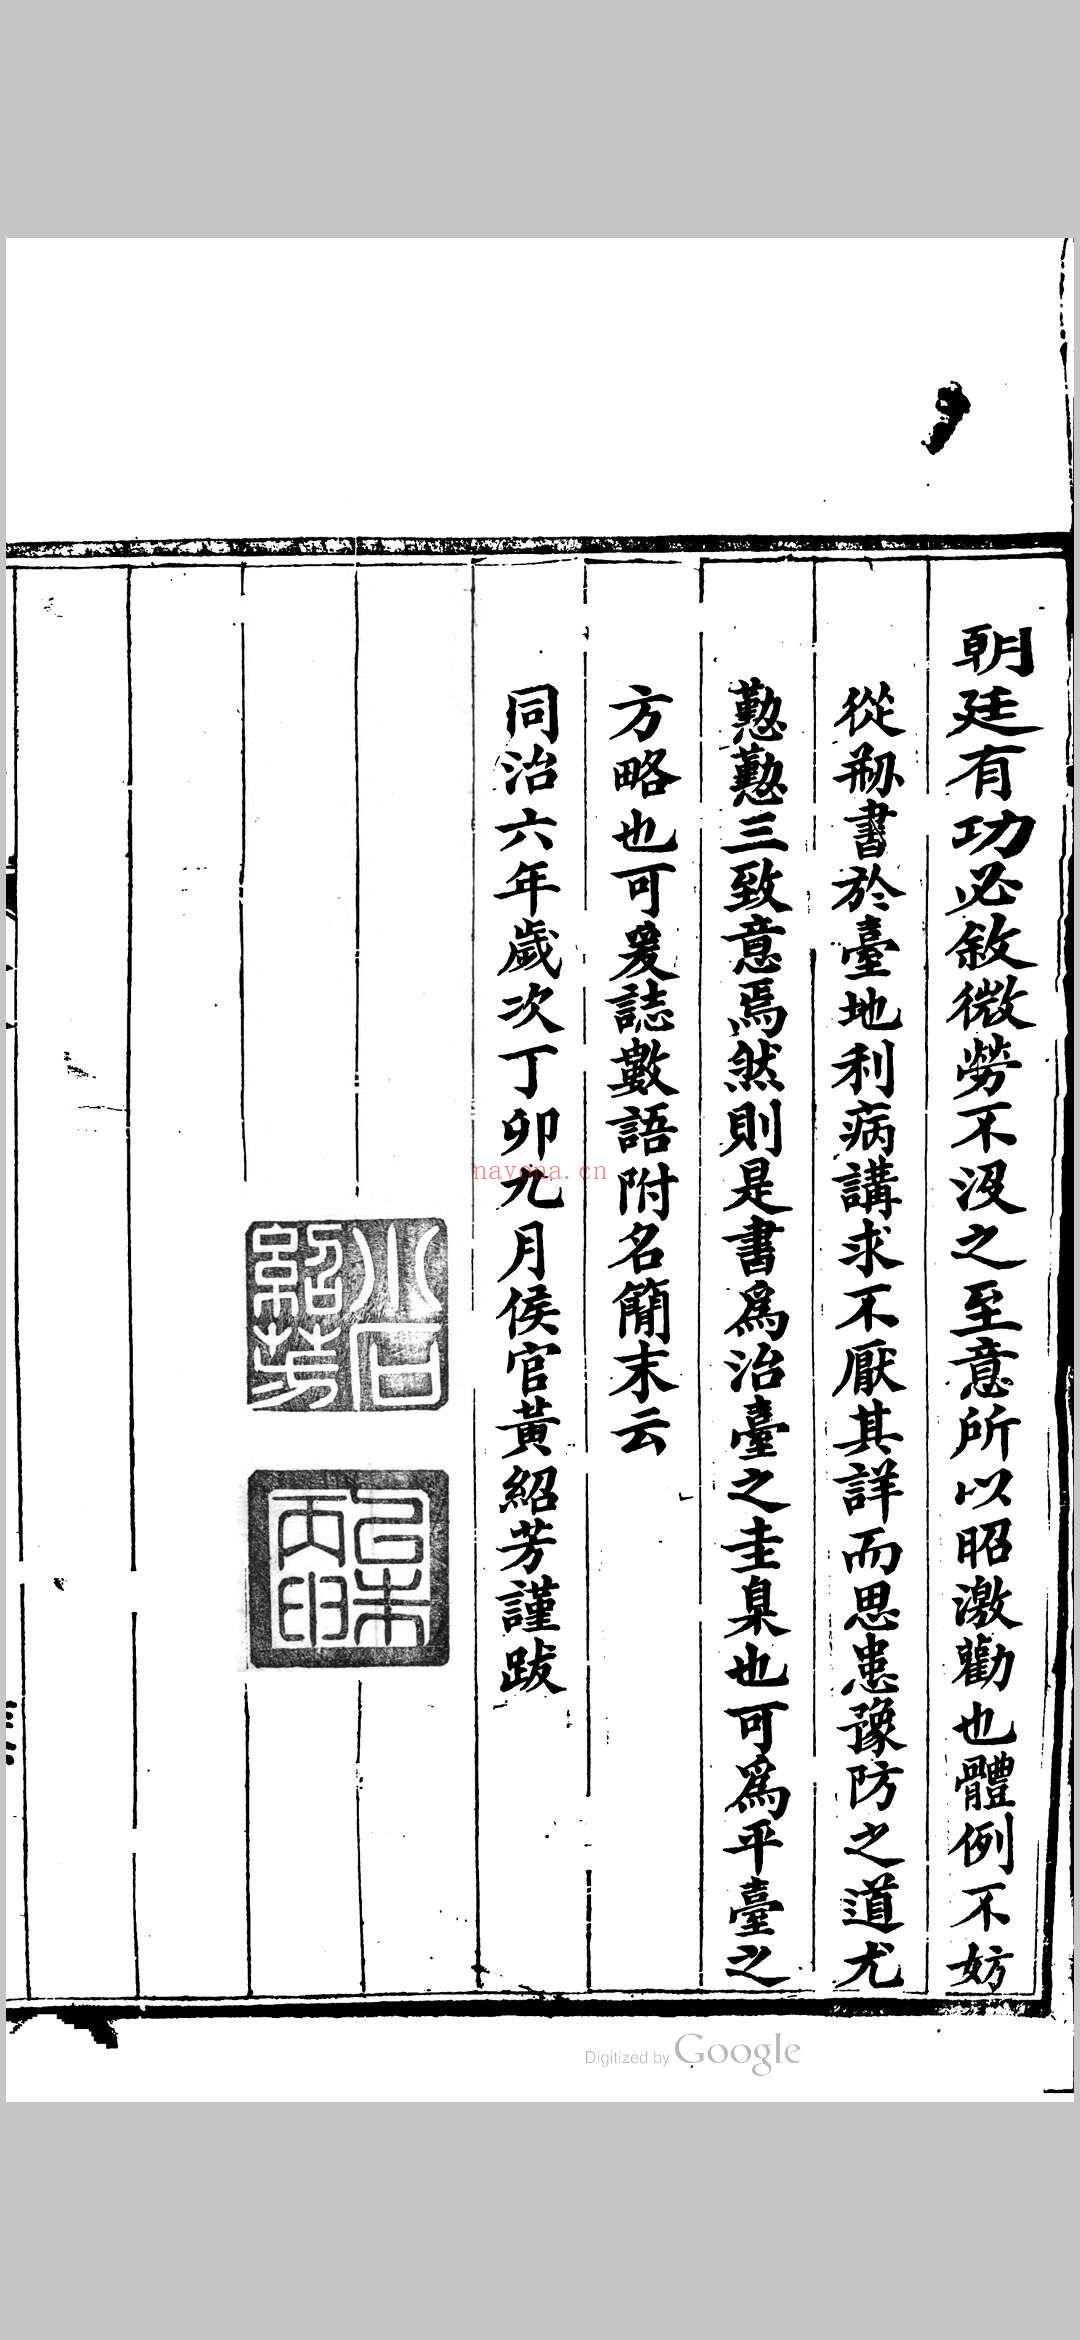 朝廷有功必敘微勞不沒之至意所以昭激勸也體例不妨
從刱書於臺地利病講求不厭其詳而思患豫防之道尤
懃懃三致意焉然則是書爲治臺之圭臬也可爲平臺之
方略也可爰誌數語附名簡末云
同治六年歲次丁卯九月侯官黃紹芳謹跋
小石
紹芳
nayona.cn
Digitized by Google